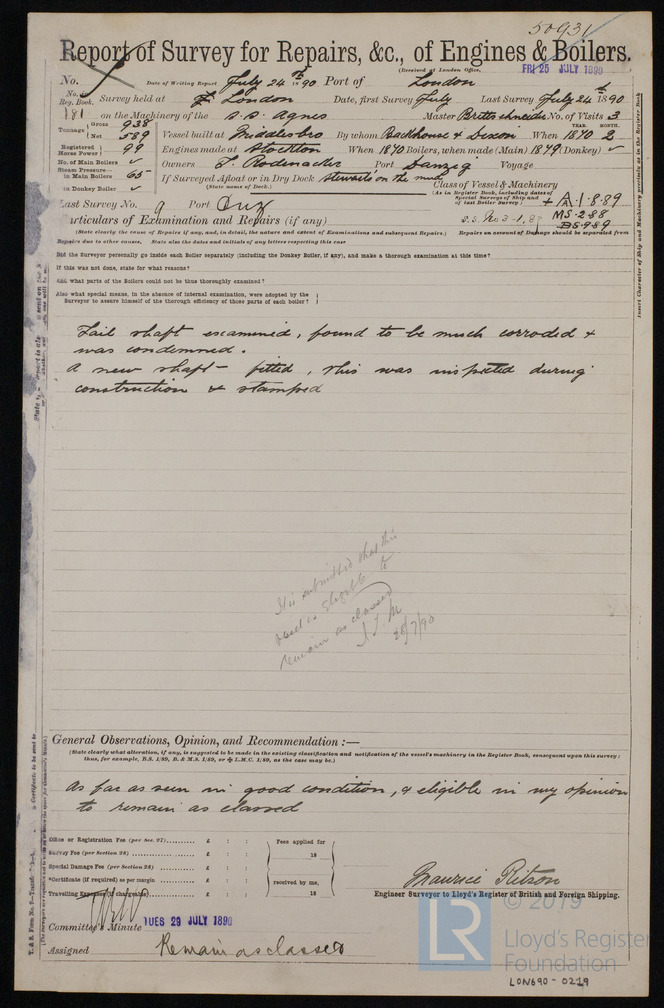 50931
Report of Survey for Repairs, &c., of Engines & Boilers.
(Received at London Office, FRI 25 JULY 1890
No. Date of Writing Report July 24th 1890 Port of London
No. in Reg. Book. Survey held at London Date, first Survey July Last Survey July 24 1890
181 on the Machinery of the S.S. Agnes Master No. of Visits 3
Tonnage Gross 938 Net 589 Vessel built at Middlesbro By whom Backhouse & Dixon When YEAR. 1870 MONTH. 2
Registered Horse Power 99 Engines made at Stockton When 1870 Boilers, when made (Main) 1879 (Donkey) ✓
No. of Main Boilers ✓ Owners Port Danzig Voyage
Steam Pressure— in Main Boilers 65 If Surveyed Afloat or in Dry Dock Stewarts on the mud
(State name of Dock.)
in Donkey Boiler ✓ Class of Vessel & Machinery
(As in Register Book, including dates of Special Surveys of Ship and of Last Boiler Survey.) + A 1 8.89
Last Survey No. 9 Port S.S. No 3-1.89 MS 2.88
BS 9.89
Particulars of Examination and Repairs (if any)
(State clearly the cause of Repairs if any, and, in detail, the nature and extent of Examinations and subsequent Repairs.) Repairs on account of Damage should be separated from
Repairs due to other causes. State also the dates and initials of any letters respecting this case
Did the Surveyor personally go inside each Boiler separately (including the Donkey Boiler, if any), and make a thorough examination at this time?
If this was not done, state for what reasons?
And what parts of the Boilers could not be thus thoroughly examined?
Also what special means, in the absence of internal examination, were adopted by the
Surveyor to assure himself of the thorough efficiency of those parts of each boiler?
Tail shaft examined, found to be much corroded &
was condemned.
A new shaft fitted, this was inspected during
construction & stamped
It is submitted that this
vessel is eligible to
remain as classed
J.T.M
28/7/90
General Observations, Opinion, and Recommendation :—
(State clearly what alteration, if any, is suggested to be made in the existing classification and notification of the vessel's machinery in the Register Book, consequent upon this survey;
thus, for example, B.S. 1/89, B. & M.S. 1/89, or ✠ L.M.C. 1/89, as the case may be.)
As far as seen in good condition, & eligible in my opinion
to remain as classed
Office or Registration Fee (per Sec. 27) £ : :
Survey Fee (per Section 28) £ : :
Special Damage Fee (per Section 28) £ : :
*Certificate (if required) as per margin £ : :
Travelling Expenses (if chargeable) £ : :
Fees applied for
18
received by me,
18
Maurice Ritson
Engineer Surveyor to Lloyd's Register of British and Foreign Shipping.
Committee's Minute TUES 29 JULY 1890
Assigned Remain as classed
© 2019
LR
Lloyd's Register
Foundation
LON690-0219
Insert Character of Ship and Machinery precisely as in the Register Book